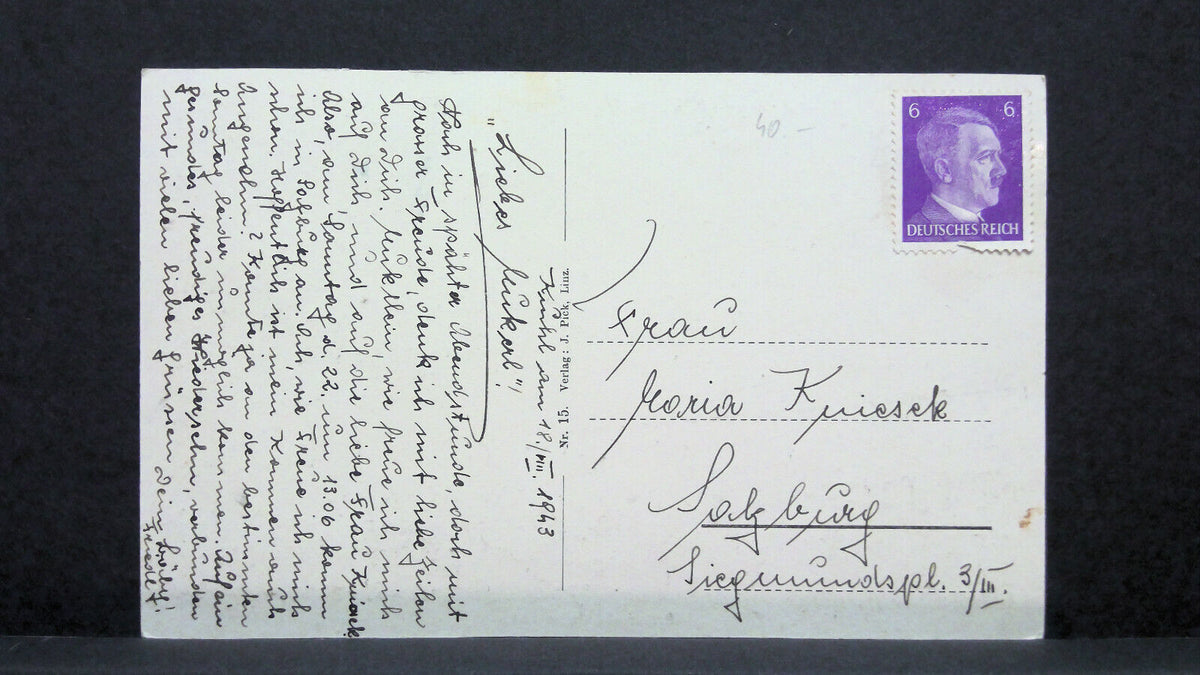 Kuchl am 18./VIII. 1943
"Liebes Mukerl"!
Noch in spähter Abendstunde, doch mit
grosser Freude, denk ich mit liebe Zeilen
an Dich. Muklein, wie freue ich mich
auf Dich und auf die liebe Frau Kniesek.
Also, am Sonntag d. 22. um 13.06 komm
ich in Salzburg an. Ach, wie freue ich mich
schon. Hoffentlich ist mein Kommen auch
Angenehm? Konnte ja an den bestimmten
Sonntag leider unmöglich kommen. Auf ein
gesundes, freudiges Wiedersehn, verbunden
mit vielen lieben Grüssen Deine
Friedl!
Nr. 15. Verlag: J. Pick, Linz.
40.-
6 6
DEUTSCHES REICH
Frau
Maria Kniesek
Salzburg
Siegmundspl. 3/III.